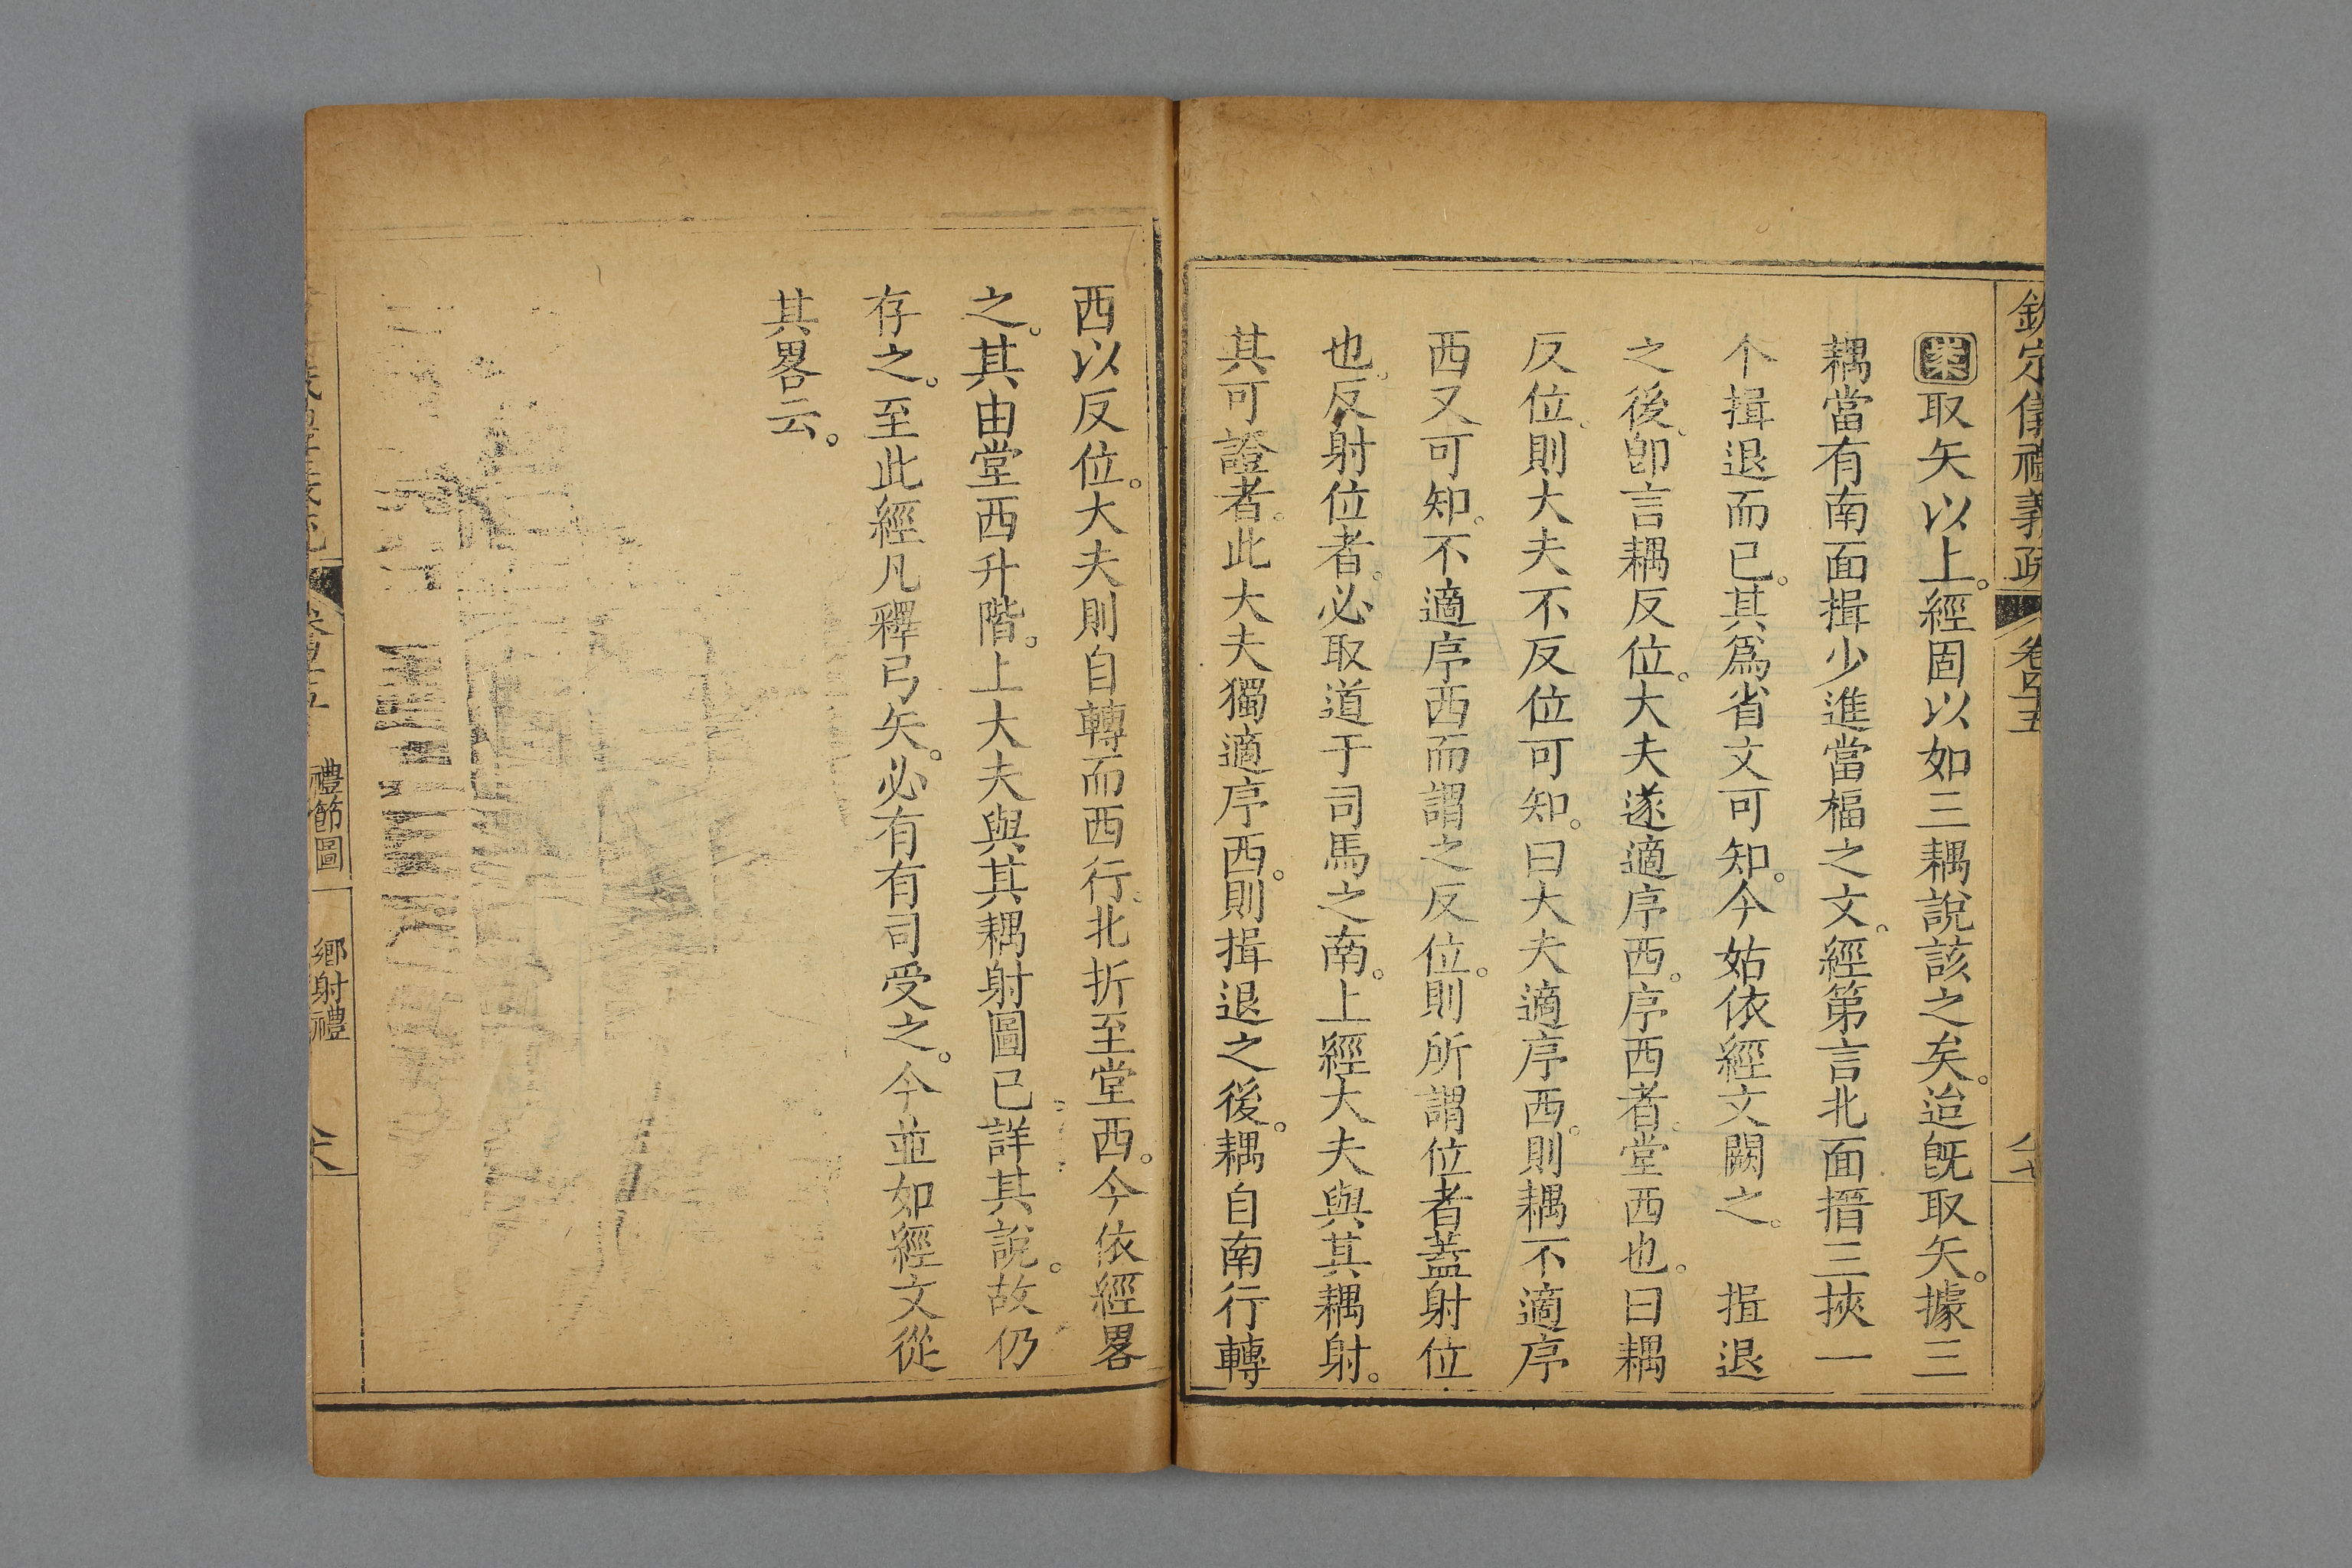 欽定儀禮義疏 卷四十五
案取矢以上。經固以如三耦說該之矣。迨旣取矢。據三
耦當有南面揖少進當楅之文。經第言北面搢三挾一
个揖退而已。其爲省文可知。今姑依經文闕之。 揖退
之後。卽言耦反位。大夫遂適序西。序西者。堂西也。曰耦
反位。則大夫不反位可知。曰大夫適序西。則耦不適序
西又可知。不適序西而謂之反位。則所謂位者蓋射位
也。反射位者。必取道于司馬之南。上經大夫與其耦射。
其可證者。此大夫獨適序西。則揖退之後。耦自南行轉
西以反位。大夫則自轉而西行。北折至堂西。今依經畧
之。其由堂西升階。上大夫與其耦射圖已詳其說。故仍
存之。至此經凡釋弓矢。必有有司受之。今並如經文從
其畧云。
禮節圖 鄉射禮